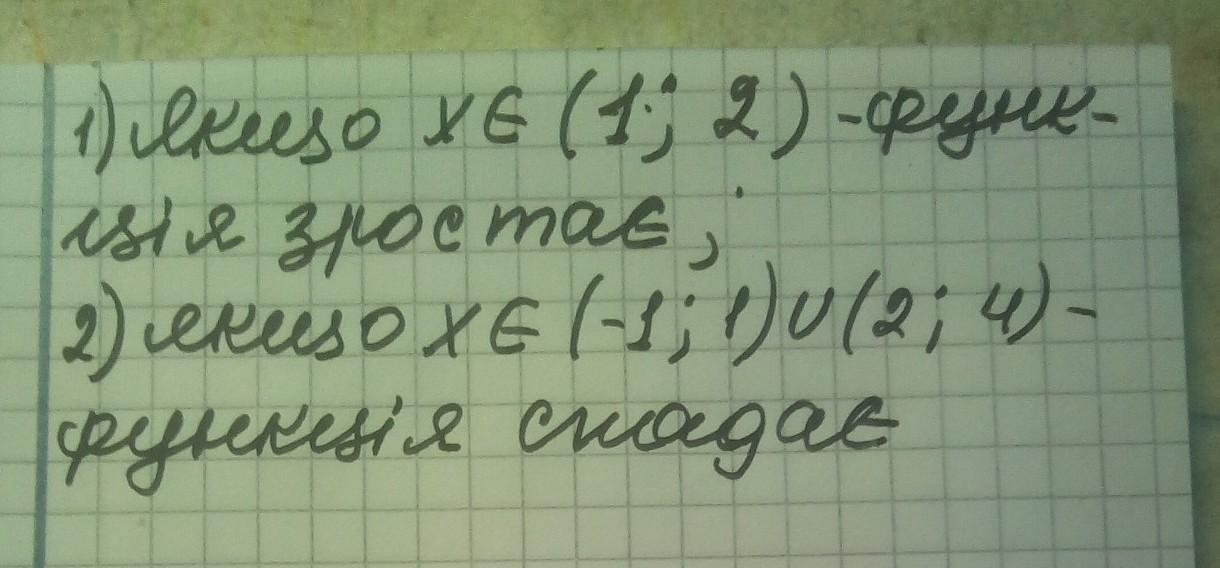 1) якщо x ∈ (1; 2) - функ-
ція зростає;
2) якщо x ∈ (-1; 1) ∪ (2; 4) -
функція спадає